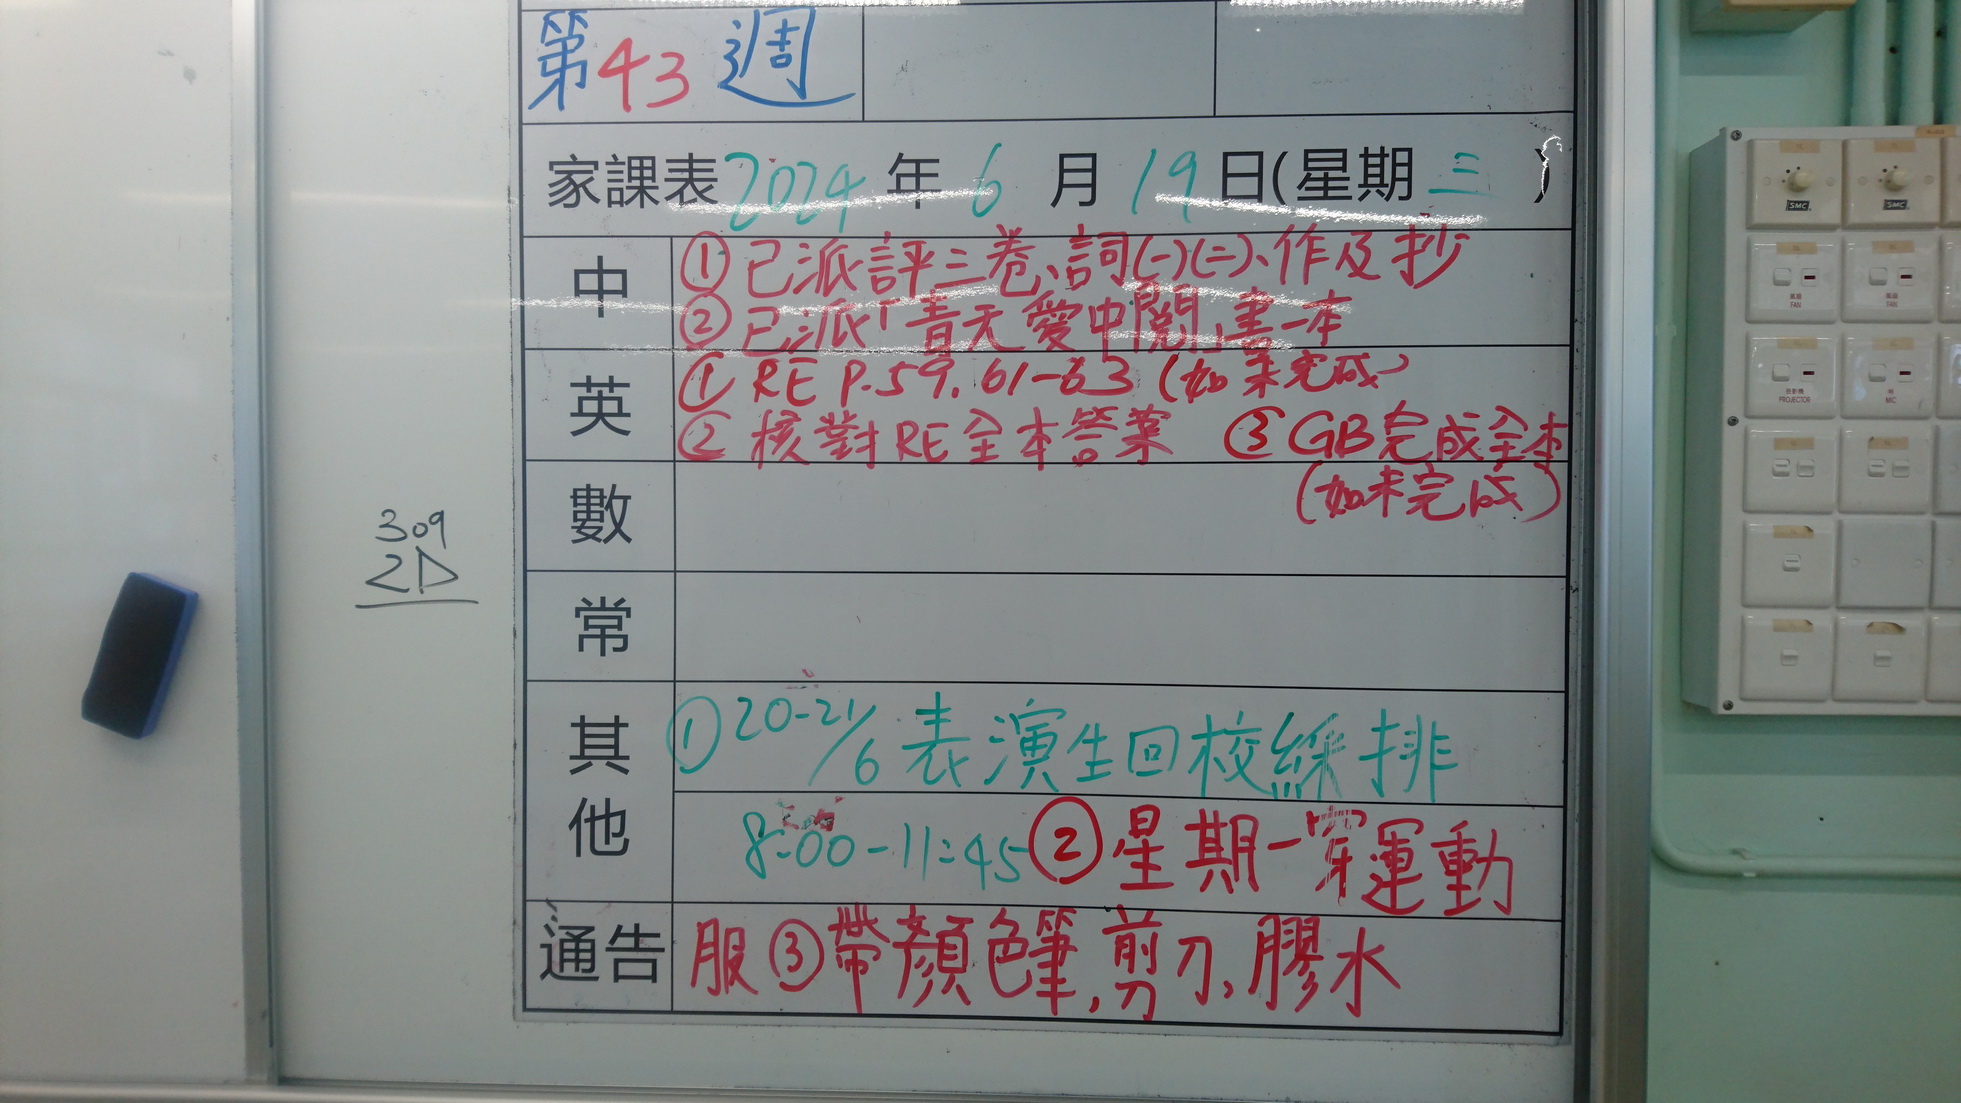 第43週
家課表 2024 年 6 月 19 日(星期 三 )
中
①已派評三卷、詞(一)(二)、作及抄
②已派「青天愛中閱」書一本
英
① RE P.59. 61-63 (如未完成)
② 核對RE全本答案 ③GB完成全本
(如未完成)
數
常
其他
①20-21/6 表演生回校綵排
8:00-11:45 ②星期一穿運動
通告
服③帶顏色筆,剪刀,膠水
309
2D
SMC
SMC
FAN
FAN
PROJECTOR
MIC